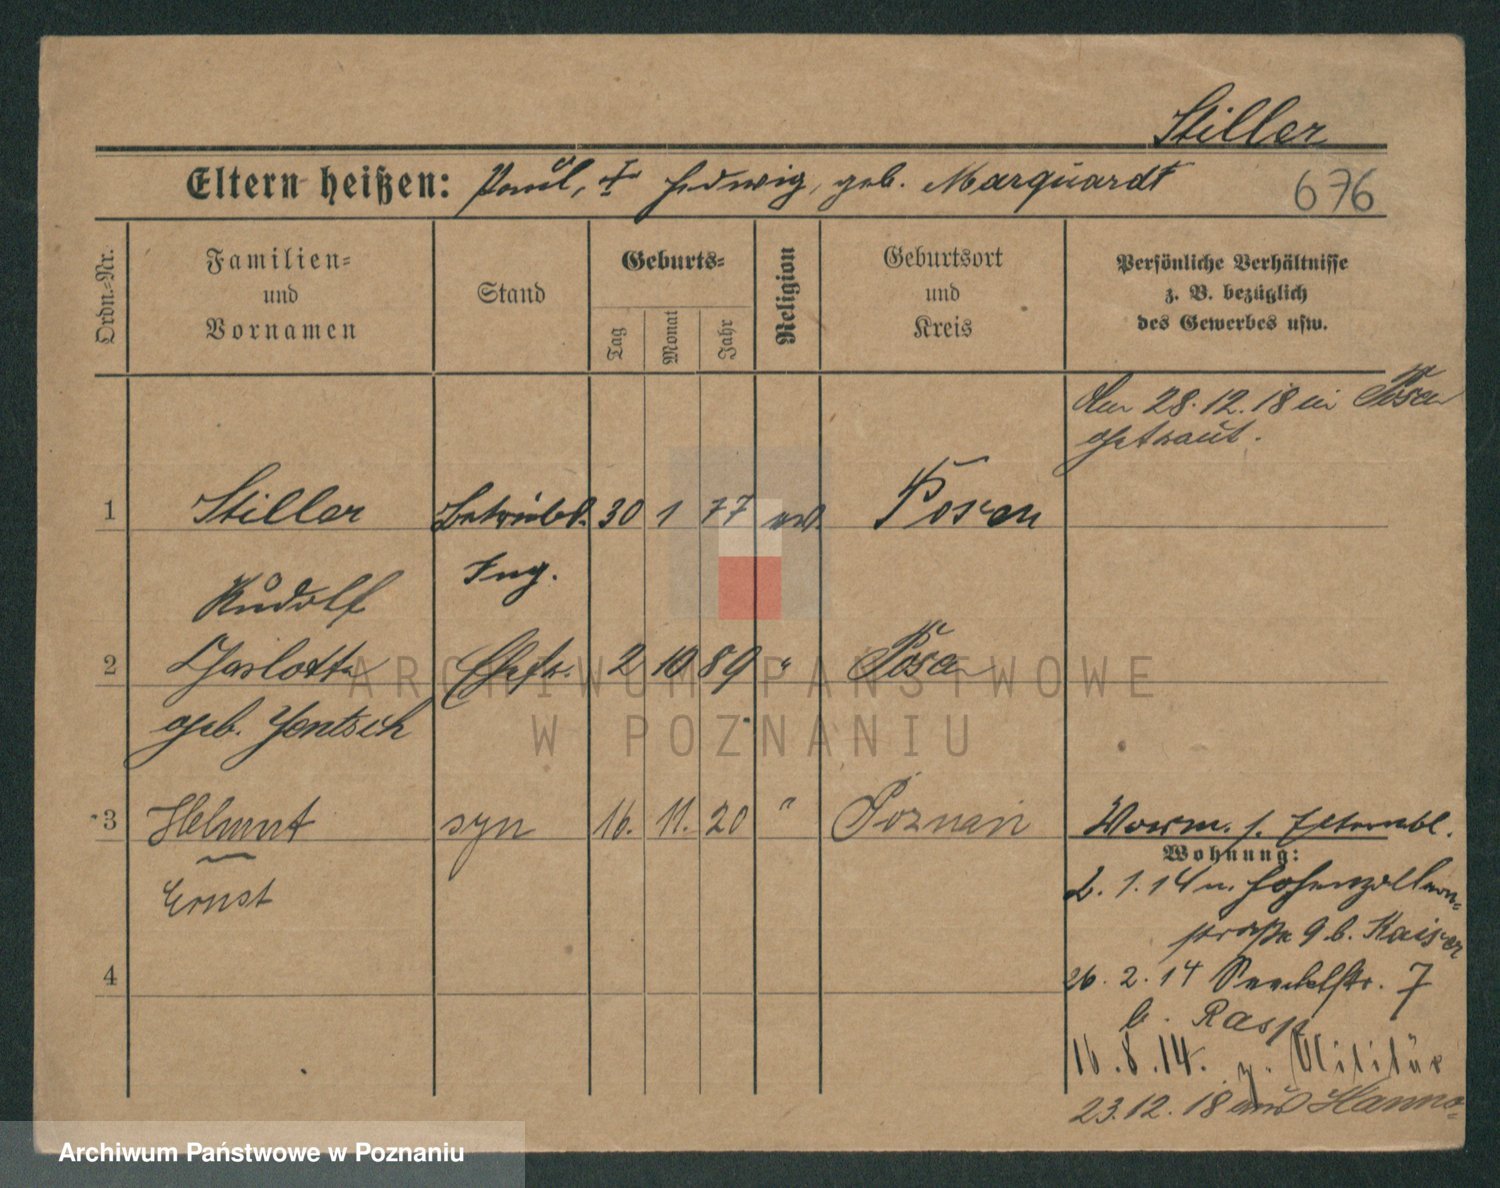 Stiller
Eltern heißen: Paul, Hedwig, geb. Marquardt
676
Ordn.-Nr.
Familien-
und
Vornamen
Stand
Geburts-
Tag
Monat
Jahr
Religion
Geburtsort
und
Kreis
Persönliche Verhältnisse
z. B. bezüglich
des Gewerbes usw.
28.12.18 in Posen
getraut.
1 Stiller Betriebs. 30 1 77 ev. Posen
Ing.
Rudolf
2 Charlotte Ehefr. 2 10 89 " Posen
geb. Jentsch
3 Helmut syn 16. 11. 20 " Poznań
Ernst
4
Wohnung:
2. 1. 14 n. Hohenzollern-
straße 9 b. Kaiser
26. 2. 14 7
b. Rasp
16.8.14. z. Militär
23.12.18 aus Hanno-
ARCHIWUM PAŃSTWOWE
W POZNANIU
Archiwum Państwowe w Poznaniu